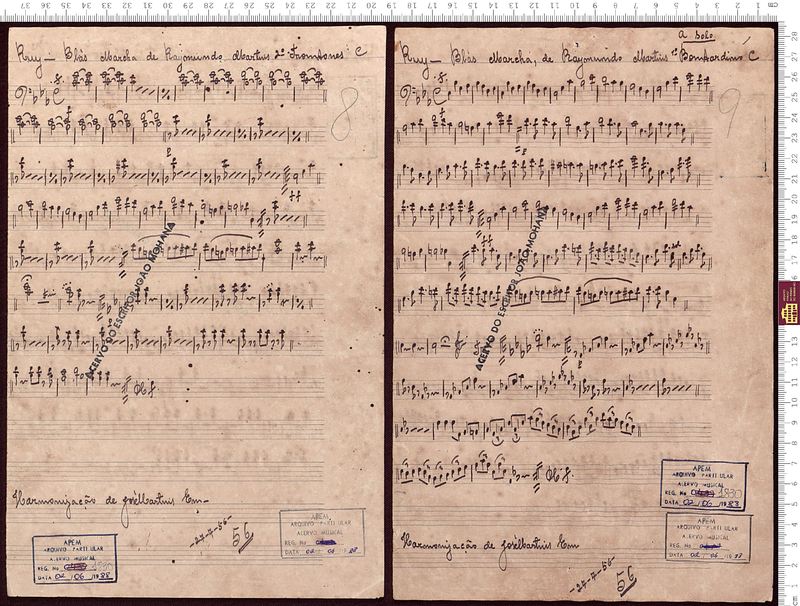 Ruy — Blás Marcha de Raymundo Martins 2º Trombones C
8
ACERVO DO ESCRITOR JOÃO MOHANA
Harmonização de José Martins Em
-27-7-56-
56
APEM
ARQUIVO PARTICULAR
ACERVO MUSICAL
REG. No 1830
DATA 02 / 06 / 1988
APEM
ARQUIVO PARTICULAR
ACERVO MUSICAL
REG. No
DATA 02 / 06 / 1988
A Solo
Ruy — Blás Marcha, de Raymundo Martins Bombardino C
9
ACERVO DO ESCRITOR JOÃO MOHANA
Harmonização de José Martins Em
-27-7-56-
56
APEM
ARQUIVO PARTICULAR
ACERVO MUSICAL
REG. No 1830
DATA 02 / 06 / 1988
APEM
ARQUIVO PARTICULAR
ACERVO MUSICAL
REG. No
DATA 02 / 06 / 1988